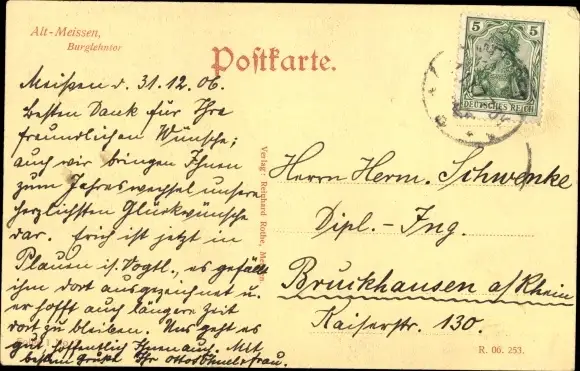 Alt-Meissen,
Burglehntor
Postkarte.
5 5
DEUTSCHES REICH
Meißen d. 31.12.06.
Besten Dank für Ihre
freundlichen Wünsche;
auch wir bringen Ihnen
zum Jahreswechsel unsere
herzlichsten Glückwünsche
dar. Erich ist jetzt in
Plauen i/. Vogtl., es gefällt
ihm dort ausgezeichnet u.
er hofft auch längere Zeit
dort zu bleiben. Uns geht es
gut, hoffentlich Ihnen auch. Mit
bestem Gruße Ihr
Verlag: Reinhard Rothe, Meißen
Herrn Herm. Schwenke
Dipl.-Ing.
Bruckhausen a/Rhein
Kaiserstr. 130.
R. 06. 253.